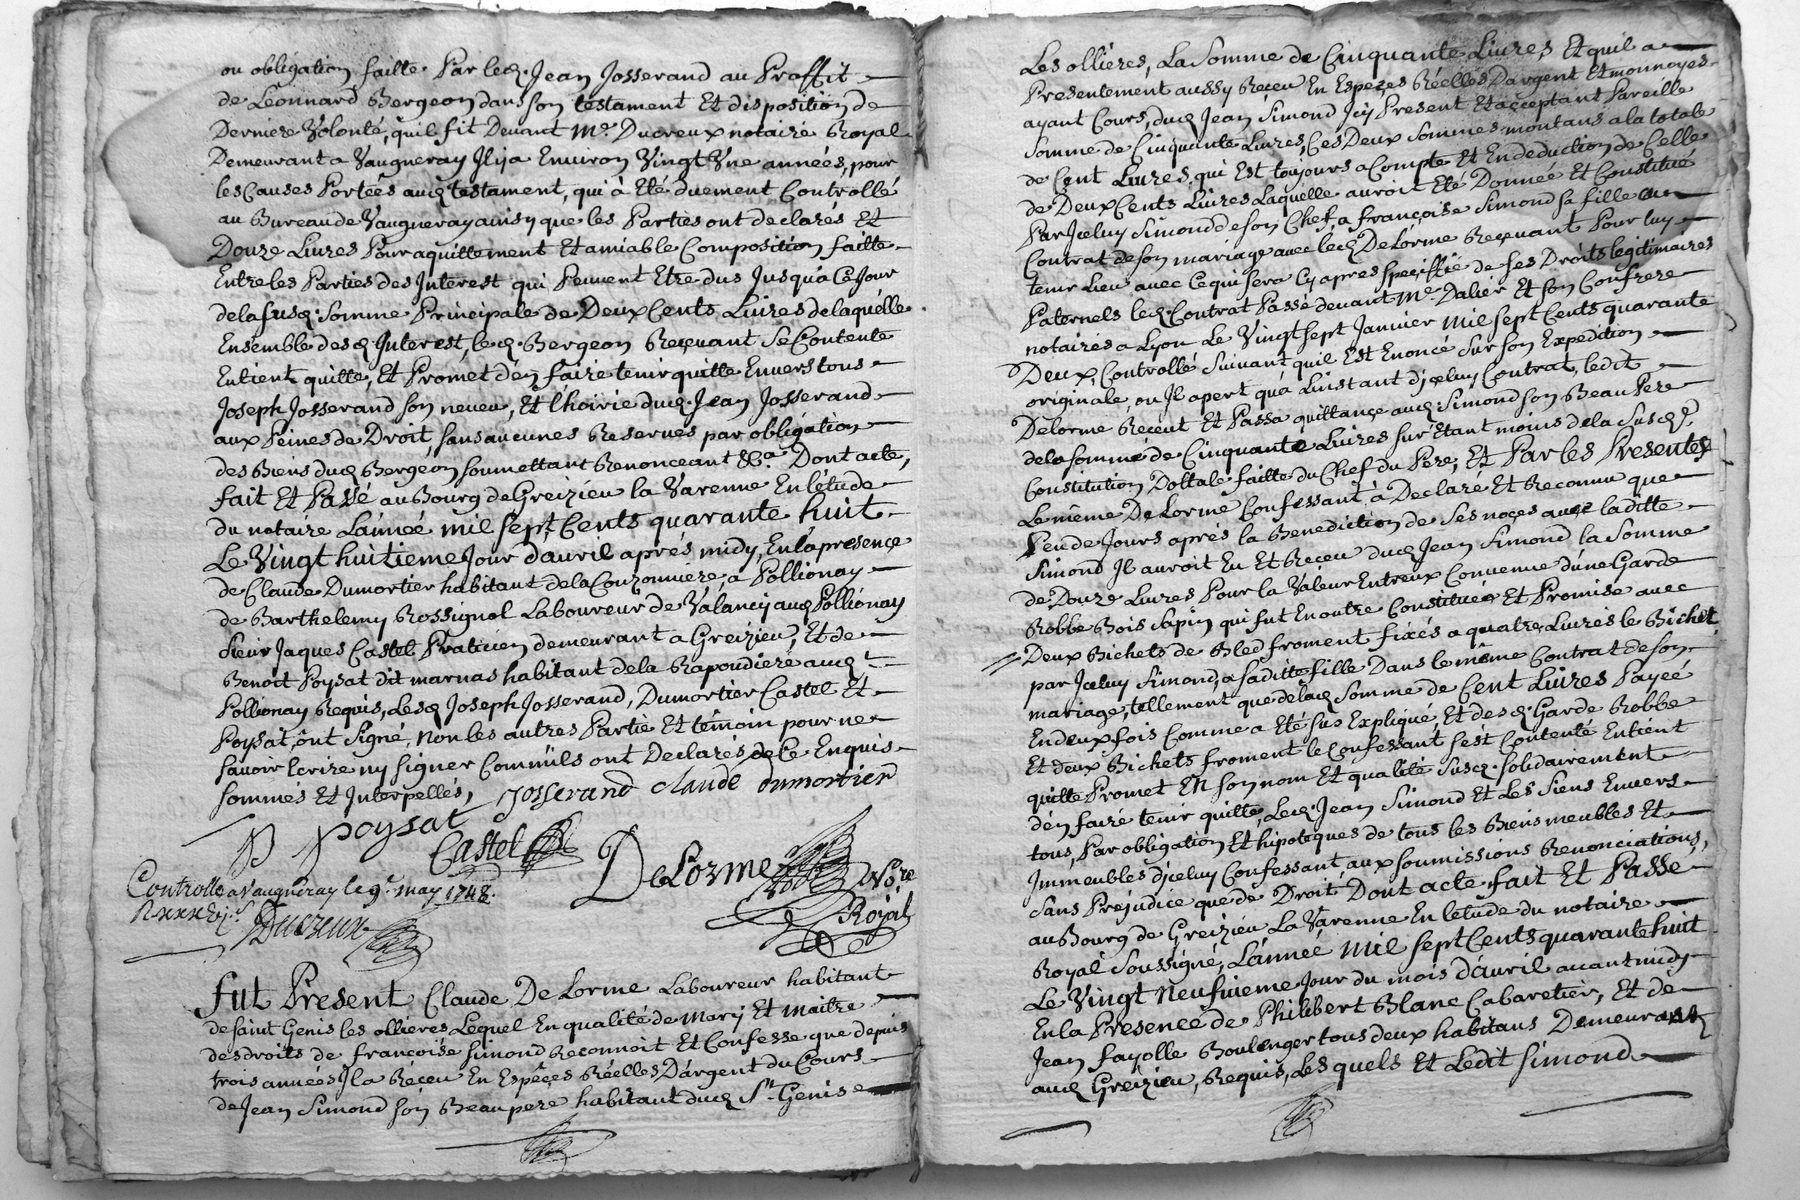 ou obligation faitte Par lecq. Jean Josserand au Proffit
de Léonnard Bergeon dans son testament Et disposition de
Derniere Volonté, qu'il fit Devant Me. Ducreux notaire Royal
Demeurant a Vaugneray Il ya Environ Vingt Vne années, pour
les Causes Portées aucq testament, qui à Eté duement Controllé
au Bureau de Vaugneray ainsy que les Parties ont declarés Et
Douze Livres Pour aquittement Et amiable Composition faitte
Entre les Parties des Interest qui Peuvent Etre dus Jusqu'a Ce Jour
de la susq. Somme Principale de Deux Cents Livres de laquélle
Ensemble desq Interest, lecq. Bergeon Reçevant Se Contente
En tient quitte, Et Promet d'en faire tenir quitte Envers tous
Joseph Josserand son neveu, Et l'hoirie ducq. Jean Josserand
aux Peines de Droit, sans aucunes Reserves par obligation
des Biens ducq Bergeon soumettant Renonceant &Ca. Dont acte,
fait Et Passé au Bourg de Greizieu la Varenne En létude
du notaire L'année mil sept Cents quarante huit
Le Vingt huitieme Jour d'avril aprés midy, En la presençe
de Claude Dumortier habitant de la Couzonniere, a Pollionay
de Barthelemy Rossignol Laboureur de Valancy aucq Pollionay
Sieur Jaques Castel Praticien demeurant a Greizieu, Et de
Benoit Poysat dit marnas habitant de la Rapoudiere aucqt
Pollionay Requis, Lesq Joseph Josserand, Dumortier Castel Et
Poysat, ont Signé, non les autres Partie Et témoin pour ne
savoir Ecrire ny signer Comm'ils ont Declarés de Ce Enquis
sommés Et Interpellés,
Josserand Claude dumortier
Poysat
Castel
DeLorme Nore
Royal
Controlle a Vaugneray le 9e. may 1748.
Ducreux
Fut Present Claude De Lorme Laboureur habitant
de saint Genis les ollieres Lequel En qualité de mary Et maitre
des droits de françoise Simond Reconnoit Et Confesse que depuis
trois années Il a Réçeu En Espéçes Réelles D'argent du Cours
de Jean Simond son Beau pere habitant ducq St. Genis
Les ollieres, La Somme de Cinquante Livres, Et qu'il a
Presentement aussy Reçeu En Espeçes Réelles D'argent Et monnoyes
ayant Cours, ducq Jean Simond Icy Present Et acceptant Pareille
Somme de Cinquante Livres, Ces Deux Sommes montans a la totale
de Cent Livres, qui Est toujours a Compte Et En deduction de Celle
de Deux Cents Livres Laquelle auroit Eté Donnée Et Constitué
Par Iceluy Simond de son Chef, a françoise Simond sa fille au
Contrat de son mariage avec lecq De Lorme Reçevant Pour luy
tenir Lieu avec Ce qui sera Cy apres spéçiffié de ses Droits légitimaires
Paternels lecq. Contrat Passé devant Me. Dalier Et son Confrere
notaires a Lyon Le Vingt sept Janvier mil sept Cents quarante
Deux, Controllé Suivant qu'il Est Enoncé Sur son Expedition
originale, ou Il apert qu'a L'instant d'içeluy Contrat, ledit
Delorme Reçeut Et Passa quittançe aucq. Simond son Beau Pere
de la sommé de Cinquante Livres sur Etant moins de la Suscqe
Constitution Dottale faitte du Chef du Pere, Et Par les Presentes
Le même De Lorme Confessant à Declaré Et Reconnu que
Peu de Jours aprés la Benediction de Ses noçes avec laditte
Simond Il auroit Eu Et Reçeu ducq Jean Simond la Somme
de Douze Livres Pour la Valeur Entreux Convenue d'une Garde
Robbe Bois Sapin qui fut En outre Constituée Et Promise avec
Deux Bichets de Bled froment fixés a quatre Livres le Bichet
par Iceluy Simond, a saditte fille Dans le même Contrat de son
mariage, tellement que de lacq Somme de Cent Livres Payée
En deux fois Comme a Eté sus Expliqué, Et desq. Garde Robbe
Et deux Bichets froment le Confessant s'est Contenté En tient
quitte Promet En son nom Et qualité Suscq. solidairement
d'en faire tenir quitte, Lecq. Jean Simond Et Les Siens Envers
tous, Par obligation Et hipoteques de tous les Biens meubles Et
Immeubles d'içeluy Confessant, aux soumissions Renonciations,
Sans Préjudice que de Droit, Dont acte, fait Et Passé
au Bourg de Greizieu La Varenne En letude du notaire
Royal Soussigné, L'année mil sept Cents quarante huit
Le Vingt Neufuieme Jour du mois D'avril avant midy
En la Presence de Philibert Blanc Cabaretier, Et de
Jean Fayolle Boulenger tous deux habitans Demeurans
aucq Greizieu, Requis, Lesquels Et Ledit Simond